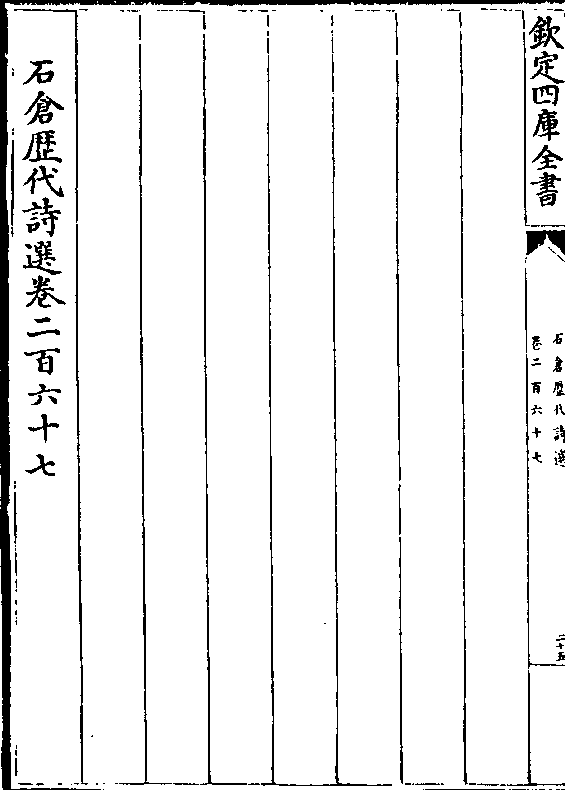 欽定四庫全書
石倉歴代詩選
卷二百六十七
二十五
石倉歴代詩選卷二百六十七